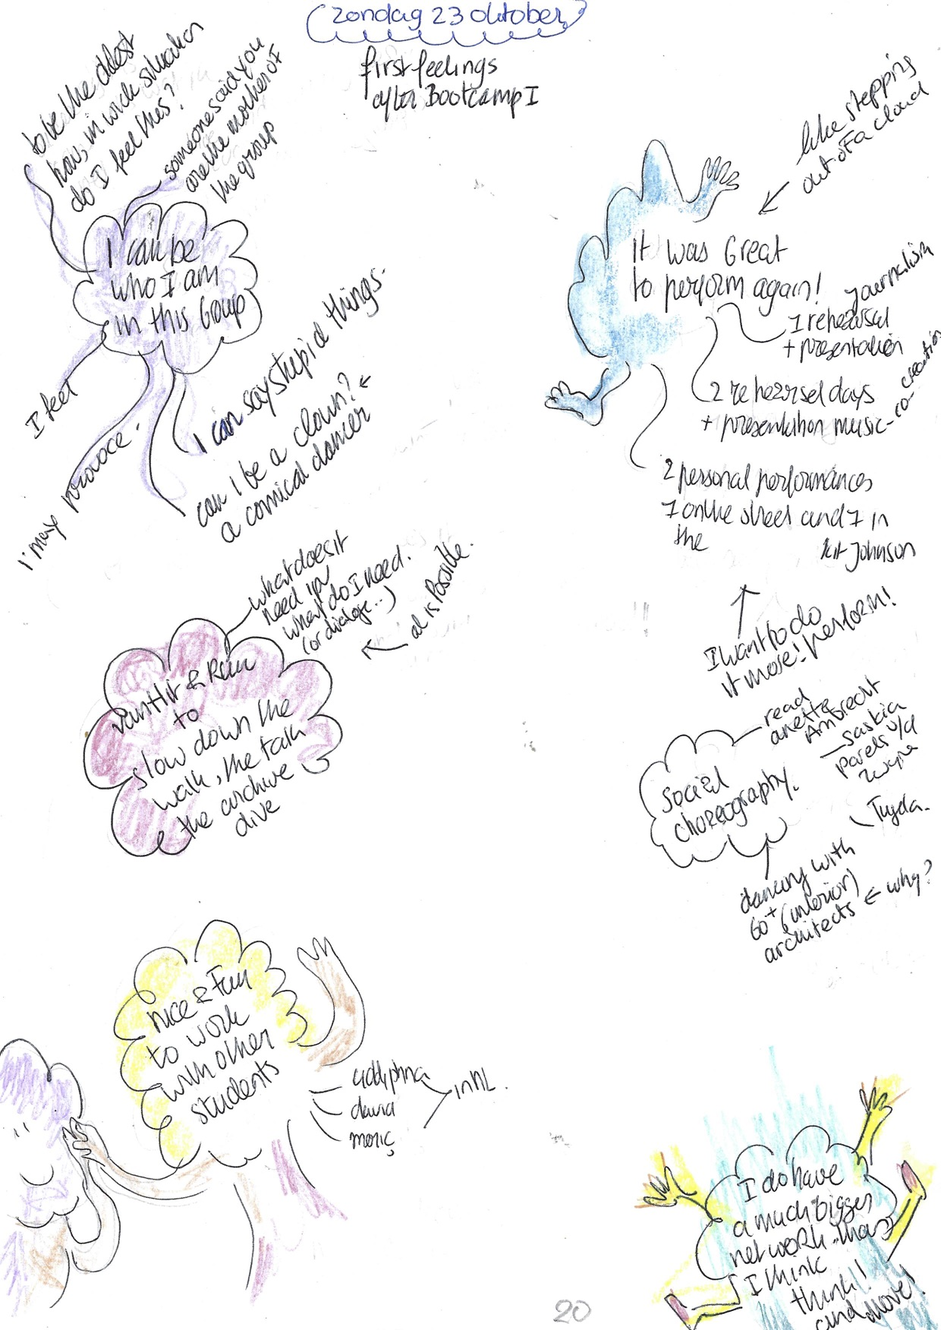 zondag 23 oktober
first feelings
after Bootcamp I
to be the oldest
how, in wich situation
do I feel this?
someone said you
are the mother of
the group
I can be
who I am
in this Group
I feel
i may provoce.
I can say stupid things.
can I be a clown?
a comical dancer
like stepping
out of a cloud
It was Great
to perform again!
1 rehearsal journalism
+ presentation
2 rehearsel days
+ presentation music-co-creation
2 personal performances
1 on the street and 1 in
the
Johnson
I want to do
it more! perform!
what does it
need in
what do I need.
(or dialoge...)
al is Possible.
& Ruin
to
slow down the
walk, the talk
the archive
dive
social
choreography.
read
anette
Ambrecht
Saskia
Parels v/d
Zwijne
Tuyda.
dancing with
60+ (interior)
architects ← why?
nice & Fun
to work
with other
students
david
in NL.
I do have
a much bigger
network than
I think
think!
and move!
20